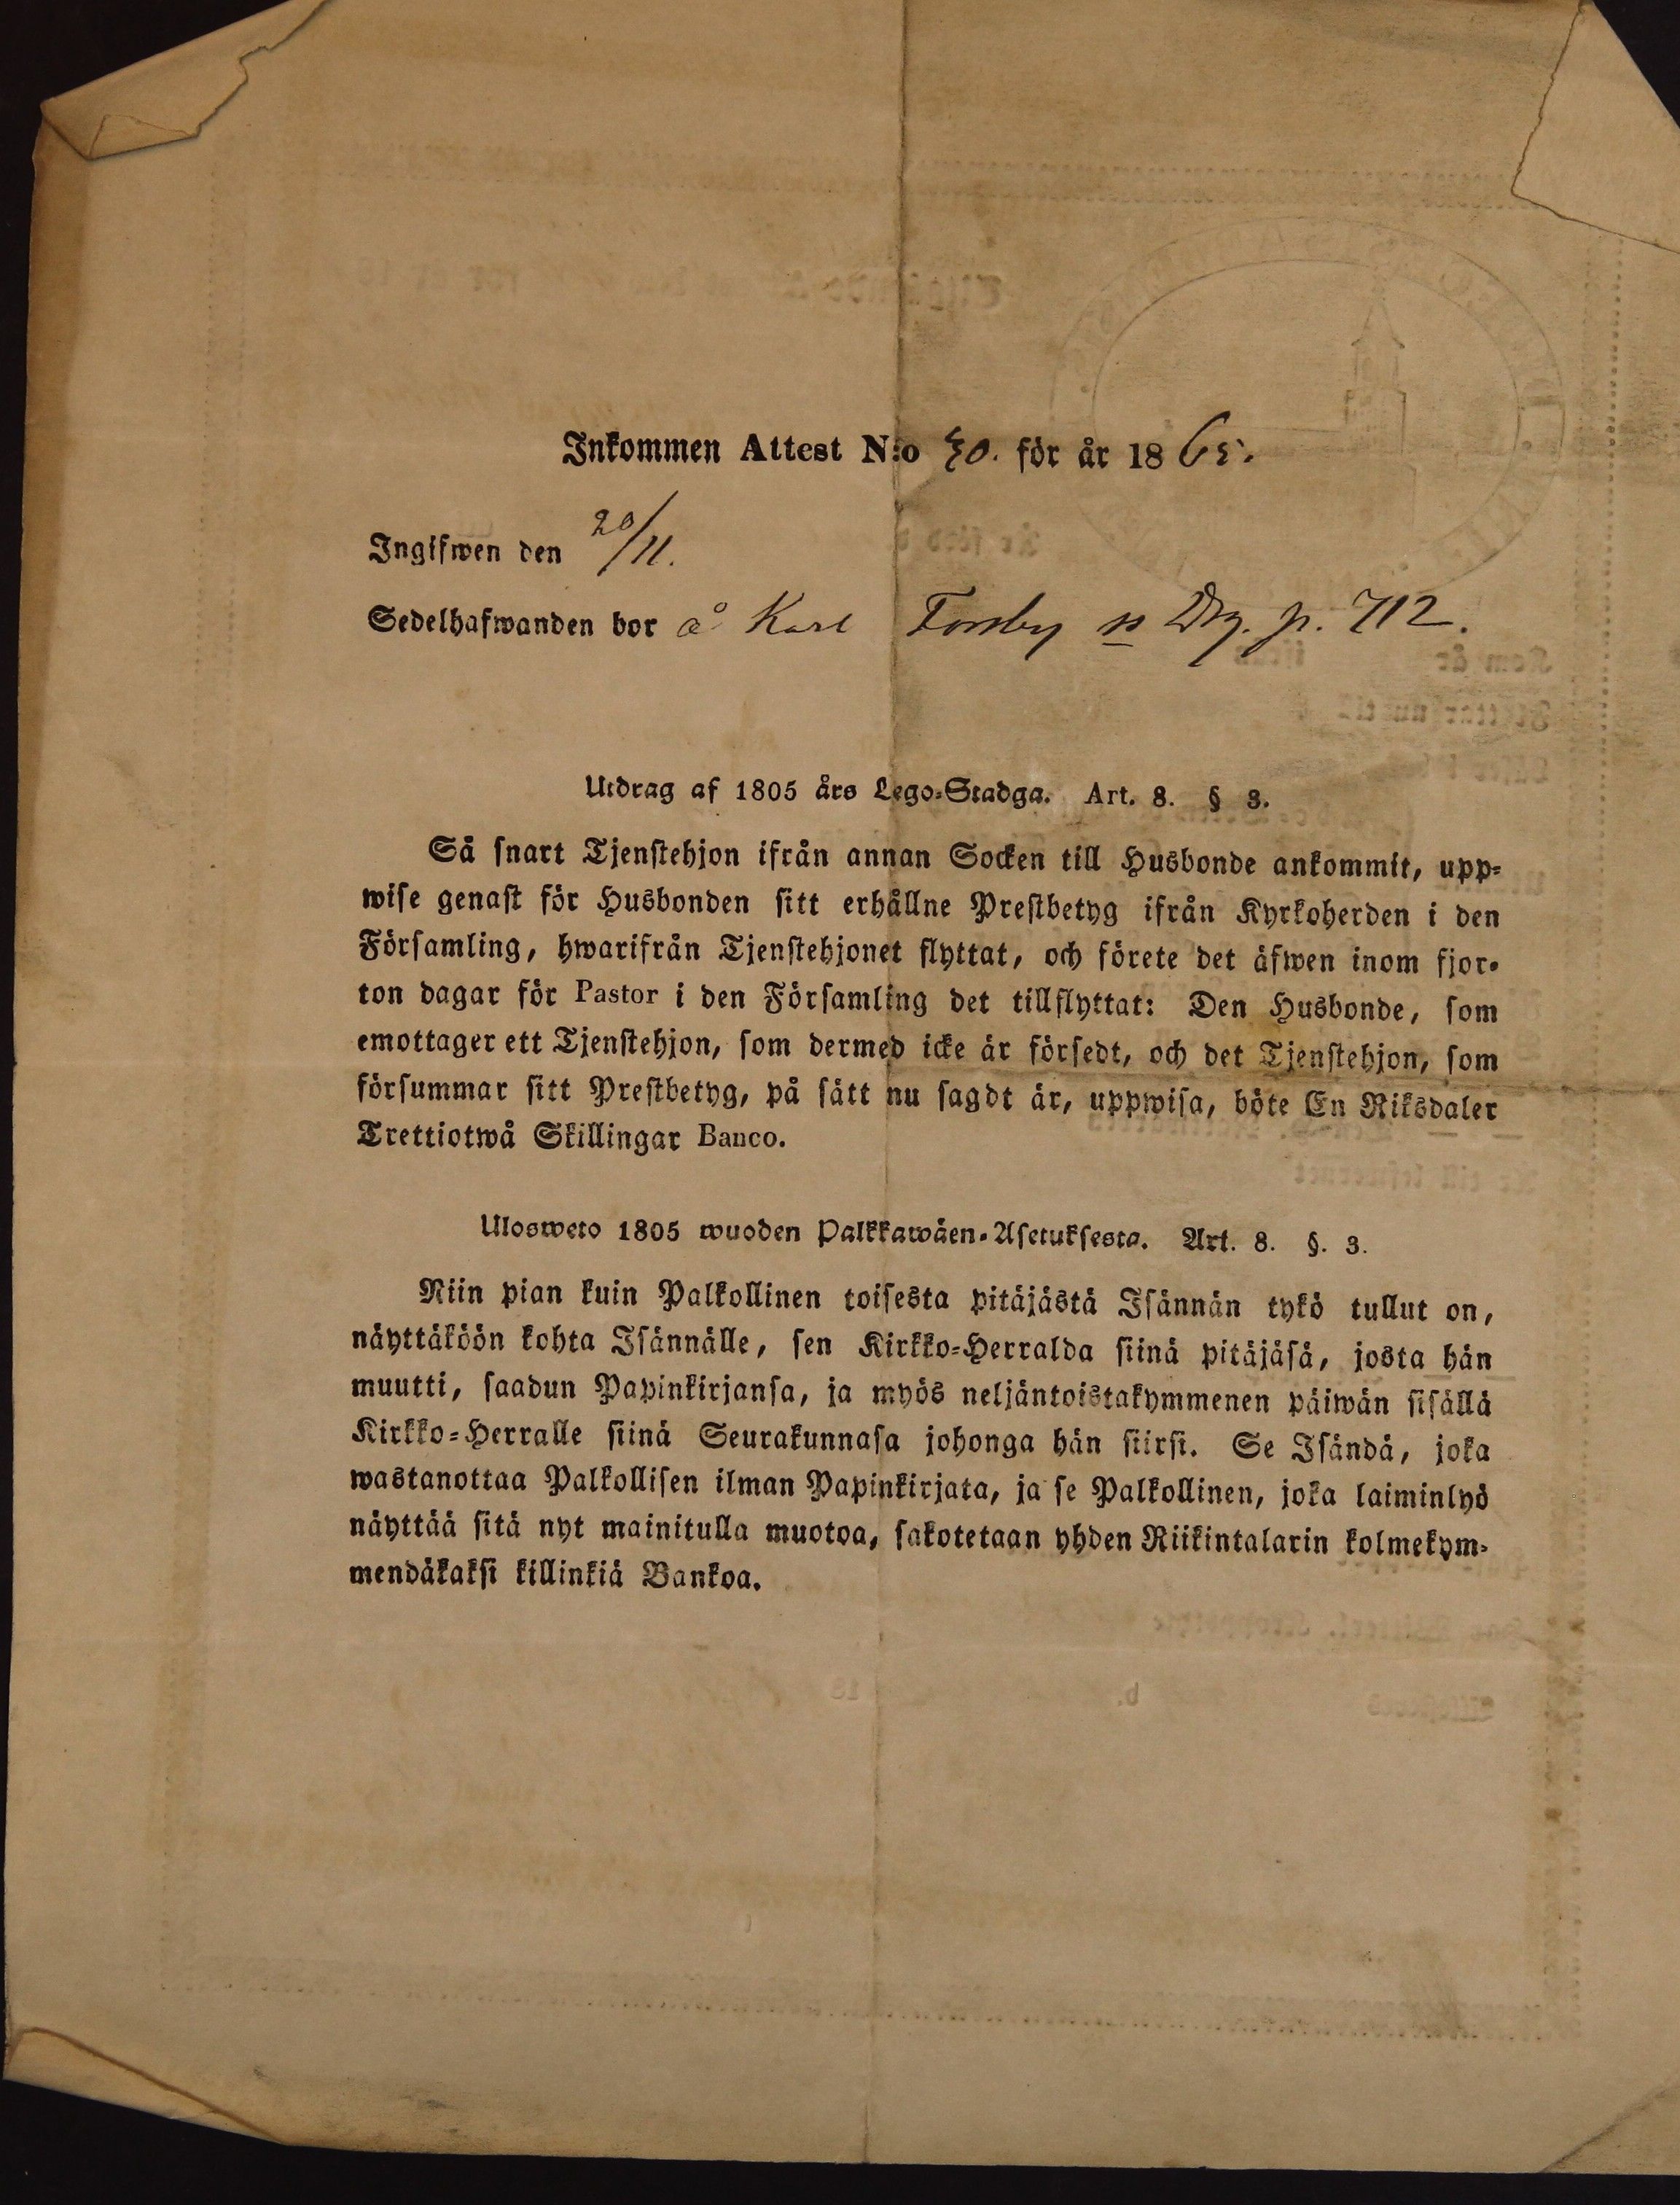 Inkommen Attest N:o 50. för år 1865.
Ingifwen den 20/11.
Sedelhafwanden bor å Karl Forsby p. 712.
Utdrag af 1805 års Lego-Stadga. Art. 8. § 3.
Så snart Tjenstehjon ifrån annan Socken till Husbonde ankommit, upp-
wise genast för Husbonden sitt erhållne Prestbetyg ifrån Kyrkoherden i den
Församling, hwarifrån Tjenstehjonet flyttat, och förete det äfwen inom fjor-
ton dagar för Pastor i den Församling det tillflyttat: Den Husbonde, som
emottager ett Tjenstehjon, som dermed icke är försedt, och det Tjenstehjon, som
försummar sitt Prestbetyg, på sätt nu sagdt är, uppwisa, böte En Riksdaler
Trettiotwå Skillingar Banco.
Ulosweto 1805 wuoden Palkkawäen-Asetuksesta. Art. 8. §. 3.
Niin pian kuin Palkollinen toisesta pitäjästä Isännän tykö tullut on,
näyttäköön kohta Isännälle, sen Kirkko-Herralda siinä pitäjäsä, josta hän
muutti, saadun Papinkirjansa, ja myös neljäntoistakymmenen päiwän sisällä
Kirkko-Herralle siinä Seurakunnasa johonga hän siirsi. Se Isändä, joka
wastanottaa Palkollisen ilman Papinkirjata, ja se Palkollinen, joka laiminlyö
näyttää sitä nyt mainitulla muotoa, sakotetaan yhden Riikintalarin kolmekym-
mendäkaksi killinkiä Bankoa.